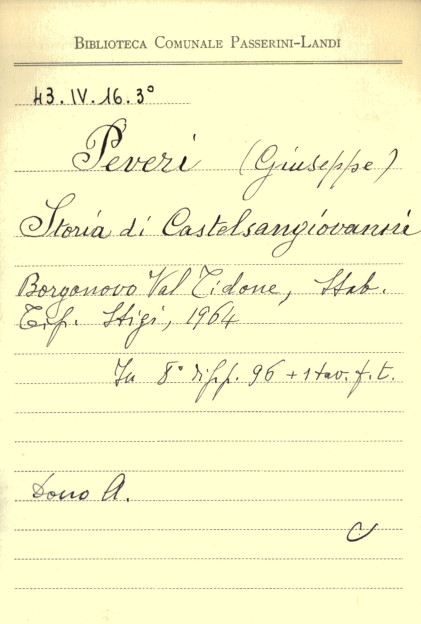 BIBLIOTECA COMUNALE PASSERINI-LANDI
43.IV.16.3°
Peveri (Giuseppe)
Storia di Castelsangiovanni
Borgonovo Val Tidone, Stab.
Tip. Stigi, 1964
In 8° di pp. 96 + 1 tav. f. t.
Dono A.
C